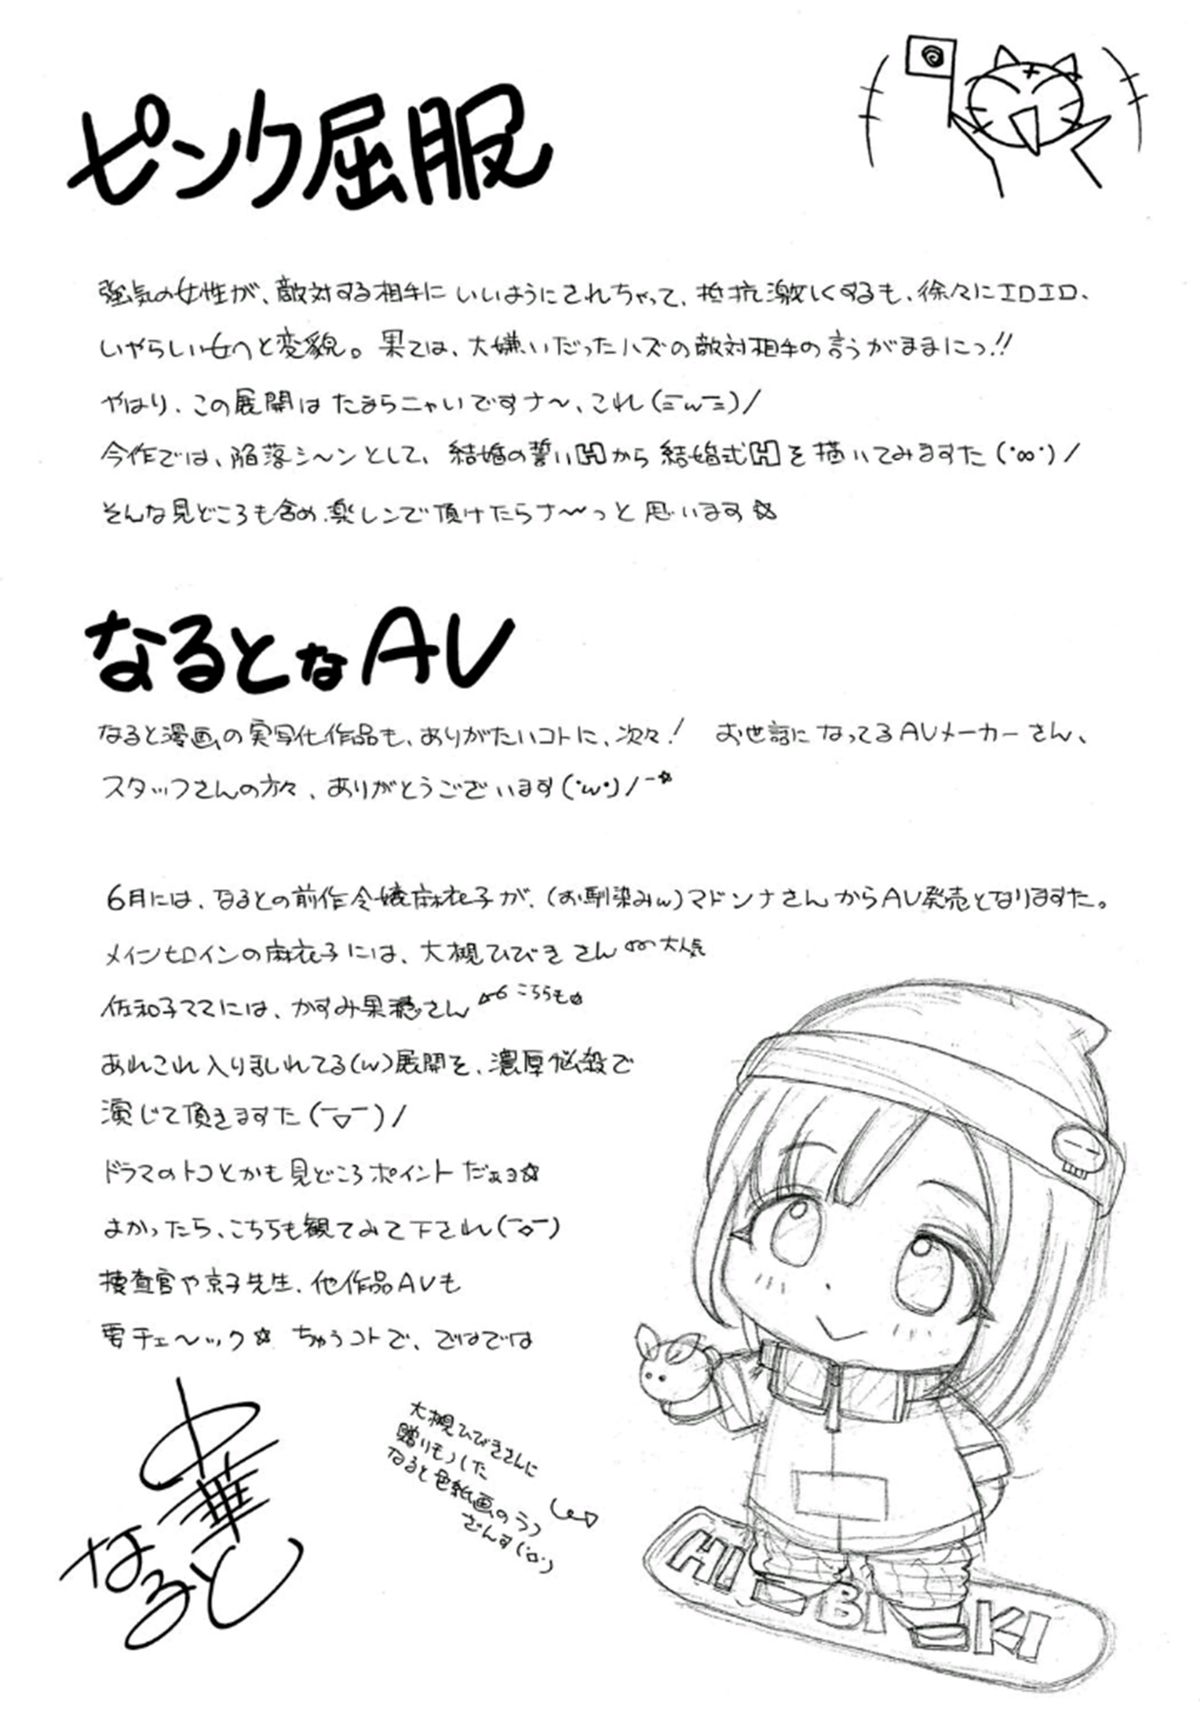 ピンク屈服
強気の女性が、敵対する相手にいいようにされちゃって、抵抗激しくするも、徐々にエロエロ、
いやらしい女へと変貌。果ては、大嫌いだったハズの敵対相手の言うがままにっ!!
やはり、この展開はたまらニャいですナ〜、これ(ΞwΞ)/
今作では、陥落シ〜ンとして、結婚の誓いHから結婚式Hを描いてみますた(・∞・)/
そんな見どころも含め、楽しンで頂けたらナ〜っと思います☆
なるとなAV
なると漫画の実写化作品も、ありがたいコトに、次々! お世話になってるAVメーカーさん、
スタッフさんの方々、ありがとうございます(・w・)/-☆
6月には、なるとの前作令嬢麻衣子が、(お馴染みw)マドンナさんからAV発売となりますた。
メインヒロインの麻衣子には、大槻ひびきさん 大人気
佐和子ママには、かすみ果穂さん こちらも☆
あれこれ入りましれてる(w)展開を、濃厚悩殺で
演じて頂きますた(￣▽￣)/
ドラマのトコとかも見どころポイントだぁョ☆
よかったら、こちらも観てみて下され(￣o￣)
捜査官や京子先生、他作品AVも
要チェ〜ック☆ ちゅうコトで、ではでは
中華なると
大槻ひびきさんに
贈りもノした
なると色紙画のラフ
ざんす(・o・)
HIBIKI